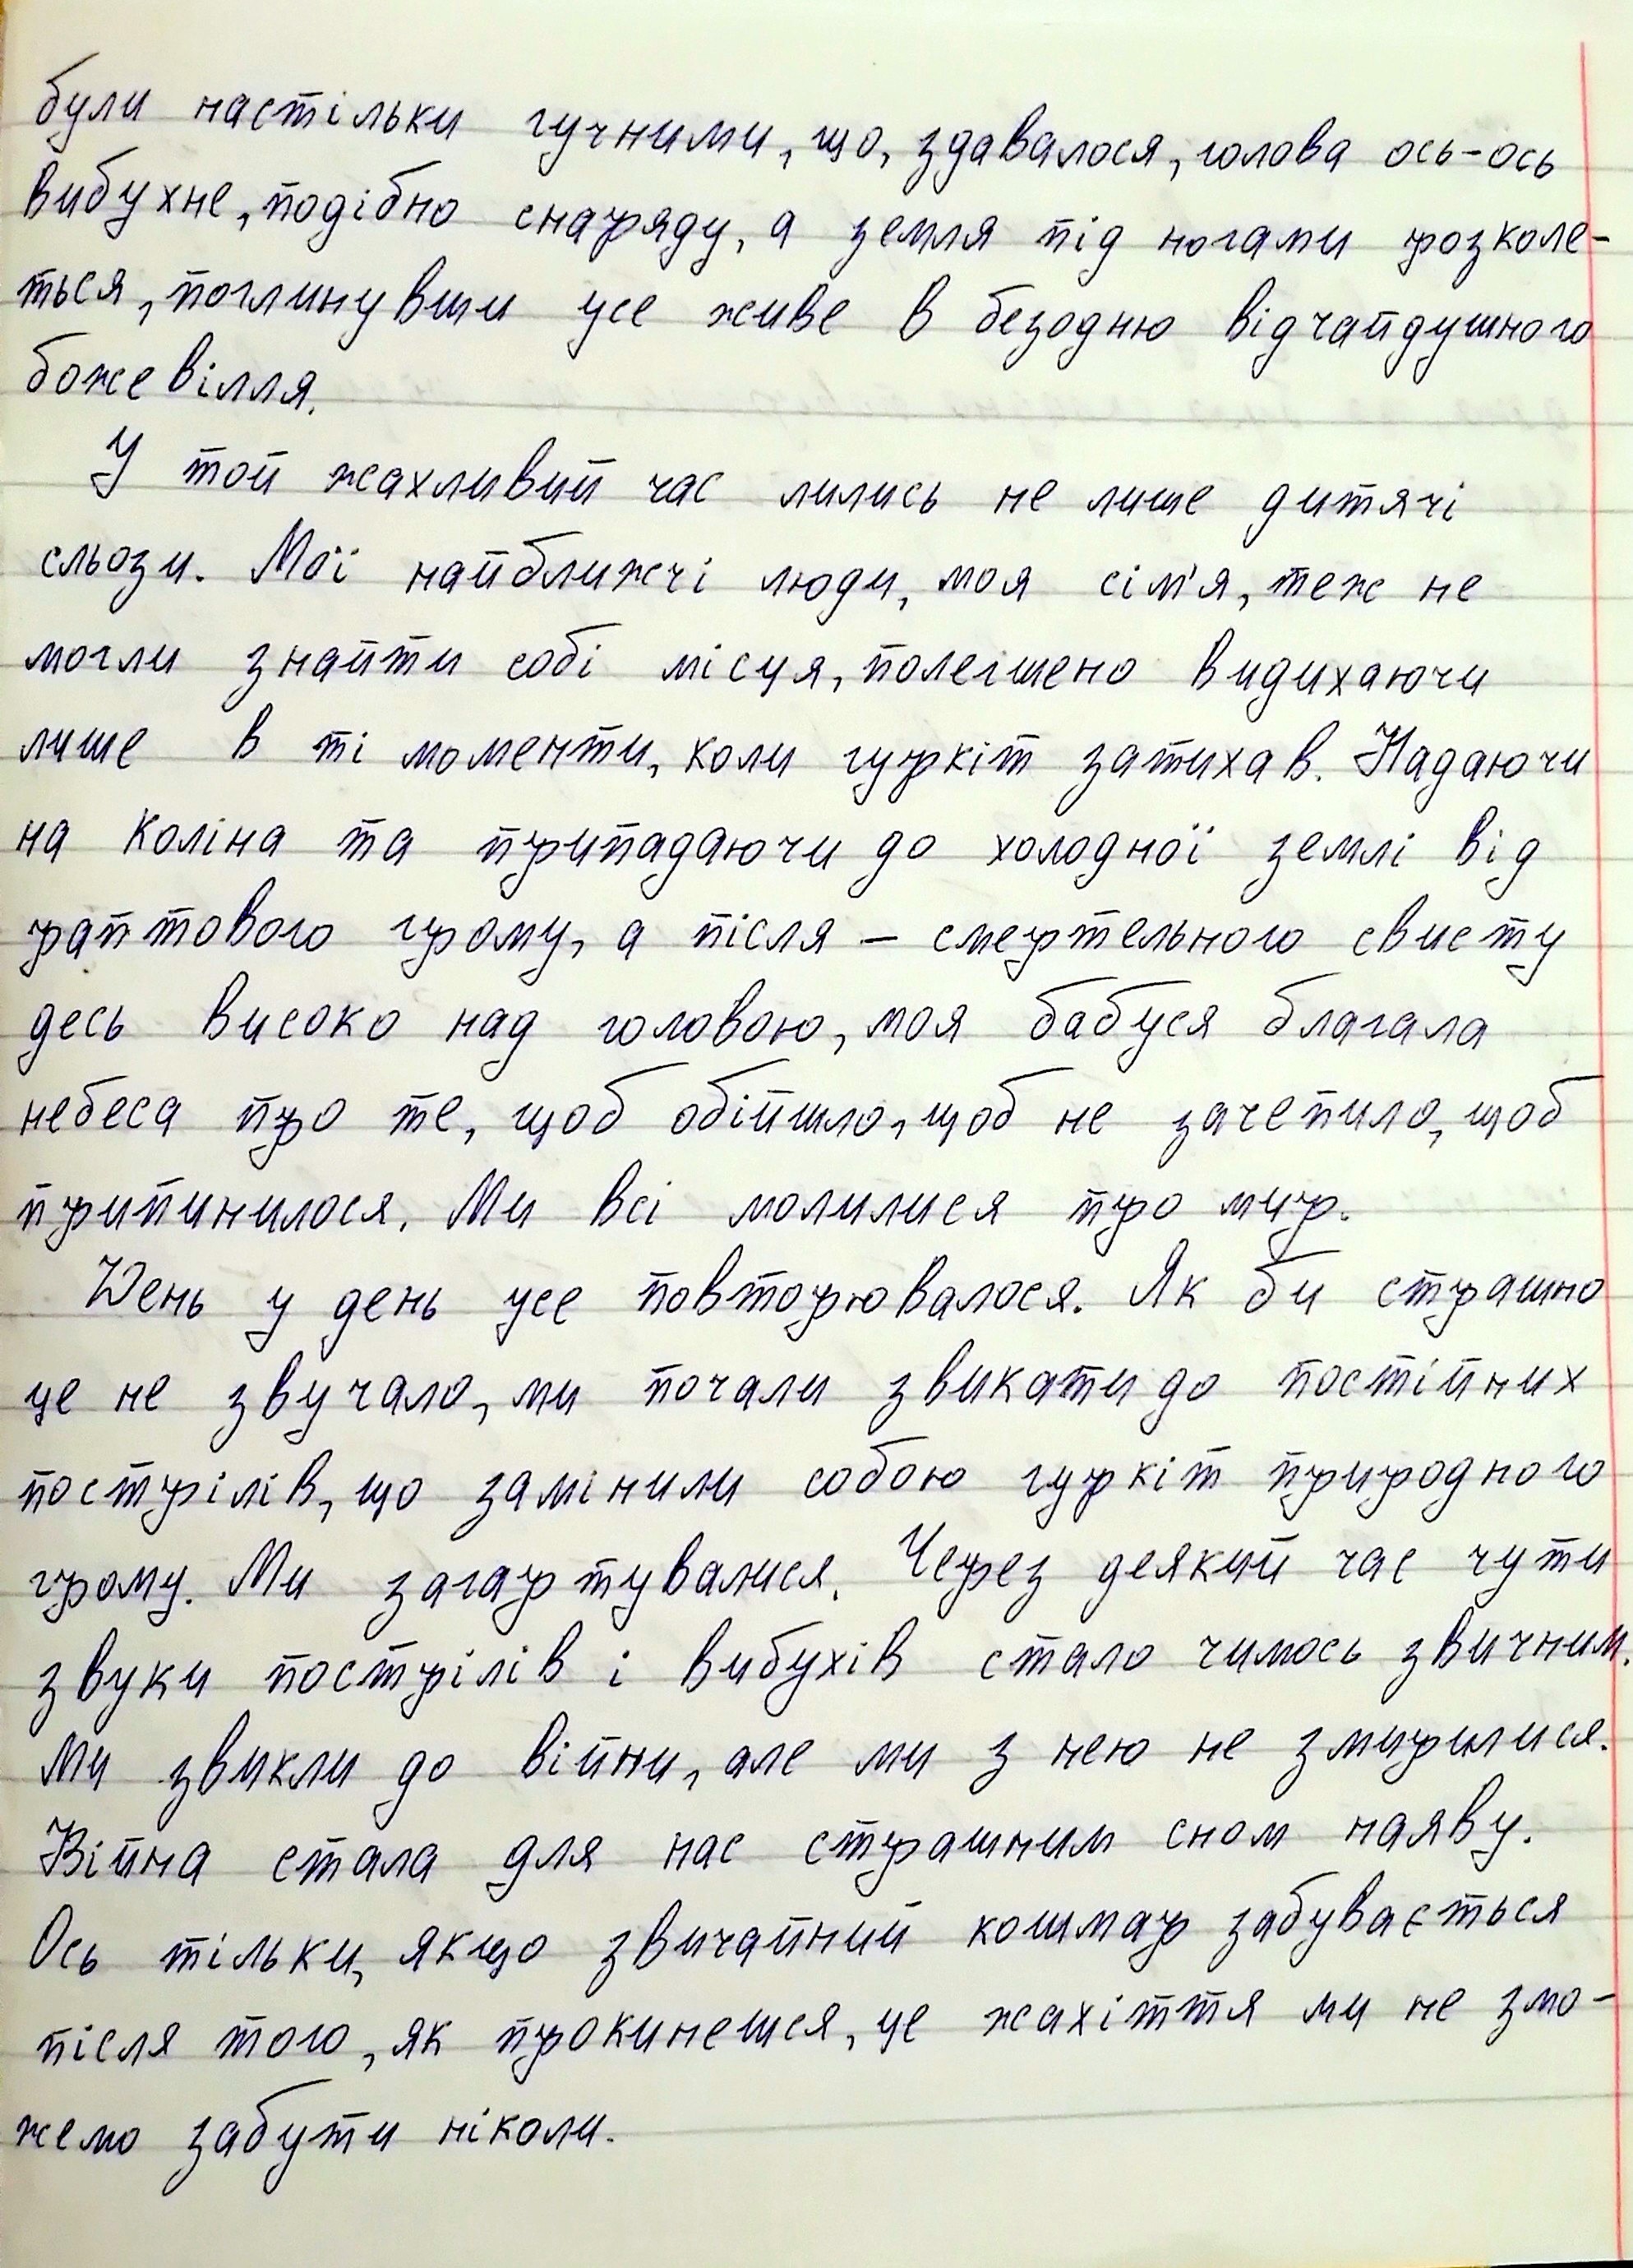 були настільки гучними, що, здавалося, голова ось-ось
вибухне, подібно снаряду, а земля під ногами розколе-
ться, поглинувши усе живе в безодню відчайдушного
божевілля.
У той жахливий час лились не лише дитячі
сльози. Мої найближчі люди, моя сім'я, теж не
могли знайти собі місця, полегшено видихаючи
лише в ті моменти, коли гуркіт затихав. Падаючи
на коліна та припадаючи до холодної землі від
раптового грому, а після – смертельного свисту
десь високо над головою, моя бабуся благала
небеса про те, щоб обійшло, щоб не зачепило, щоб
припинилося. Ми всі молилися про мир.
День у день усе повторювалося. Як би страшно
це не звучало, ми почали звикати до постійних
пострілів, що замінили собою гуркіт природного
грому. Ми загартувалися. Через деякий час чути
звуки пострілів і вибухів стало чимось звичним.
Ми звикли до війни, але ми з нею не змирилися.
Війна стала для нас страшним сном наяву.
Ось тільки, якщо звичайний кошмар забувається
після того, як прокинешся, це жахіття ми не змо-
жемо забути ніколи.